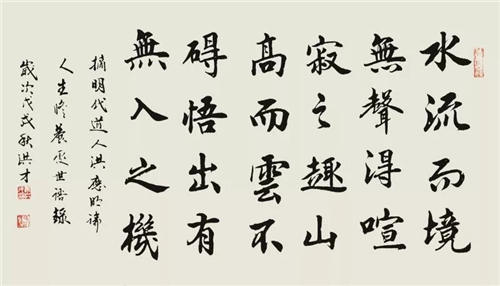 水流而境
無聲得喧
寂之趣山
高而雲不
碍悟出有
無入之機
摘明代道人洪應明諦
人生修養處世語錄
歲次戊戌秋洪才